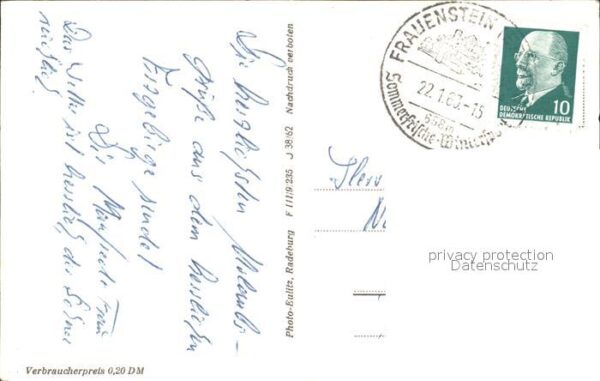 Die herzlichsten Urlaubs-
grüße aus dem herrlichen
Erzgebirge sendet
Das Wetter ist herrlich der Schnee
Photo-Eulitz, Radeburg F III/9.235 J 38/62 Nachdruck verboten
Verbraucherpreis 0,20 DM
FRAUENSTEIN
22.1.63.-15
Sommerfrische-Wintersport
10
DEUTSCHE
DEMOKRATISCHE REPUBLIK
privacy protection
Datenschutz